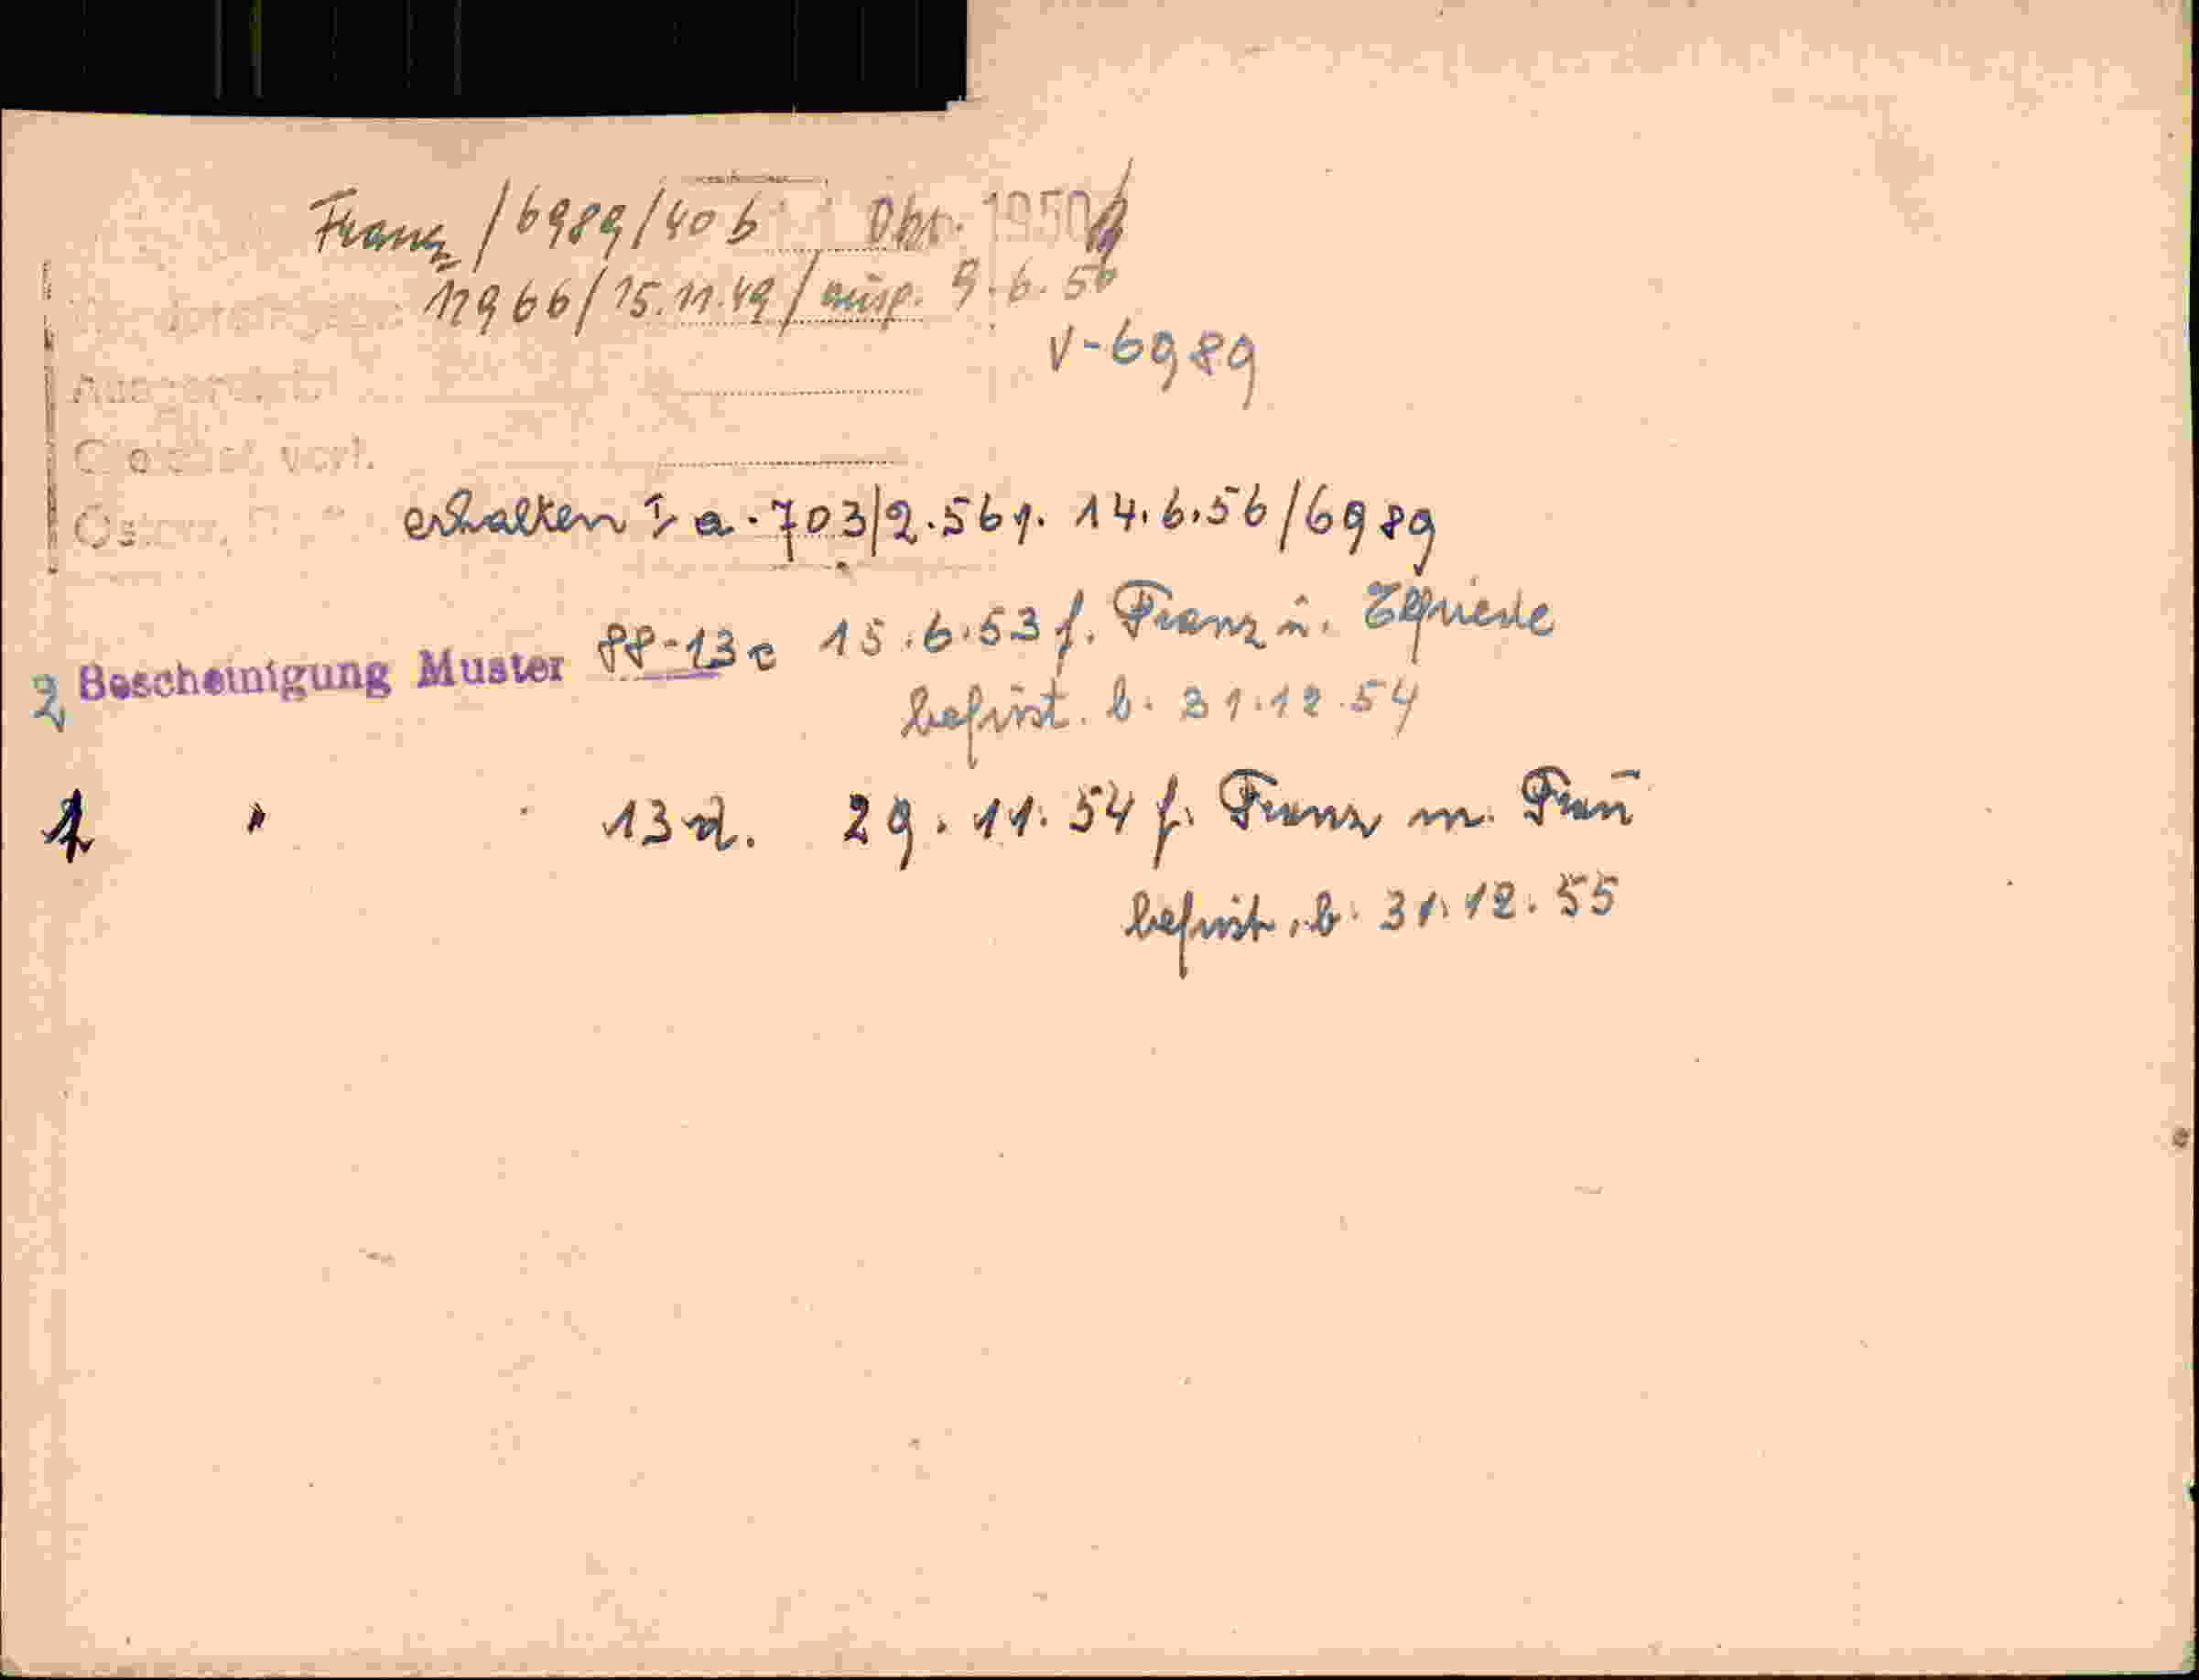 Franz / 6989 / 40 b Okt. 1950
12966 / 15.11.49 / ausp. 9.6.56
V-6989
vorl.
erhalten a. 703/2.56 14.6.56/6989
2 Bescheinigung Muster 88-13c 15.6.53 f. Franz u.
befrist. b. 31.12.54
1 " 13d. 29.11.54 f. Franz m. Frau
befrist. b. 31.12.55